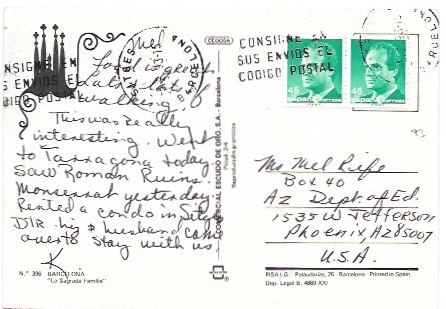 Mel
Food is great
Lots of
walking.
This was really
interesting. Went
to Tarragona today.
Saw Roman Ruins.
Monserrat yesterday.
Rented a condo in
Dir. his & husband
over to stay with us
K.
N.º 396 BARCELONA
"La Sagrada Familia"
CEDOSA
COMERCIAL ESCUDO DE ORO, S.A. - Barcelona
Reproducción prohibida
BARCELONA
CONSIGNE EN
SUS ENVIOS EL
CODIGO POSTAL
CONSIGNE EN
SUS ENVIOS EL
CODIGO POSTAL
45
45
93
Ms Mel Riefe
Box 40
Az Dept. of Ed.
1535 W Jefferson
Phoenix, Az 85007
U.S.A.
FISA I.G. - Palaudarias, 26 - Barcelona - Printed in Spain
Dep. Legal B. 4869-XXI